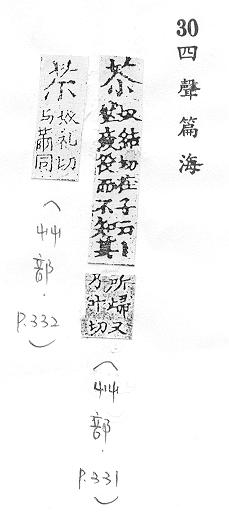 30 四聲篇海
苶 奴結切庄子曰丨
然疲役而不知其
所歸又
乃叶切
(艸部.P.331)
苶 奴礼切
与薾同
(艸部.P.332)